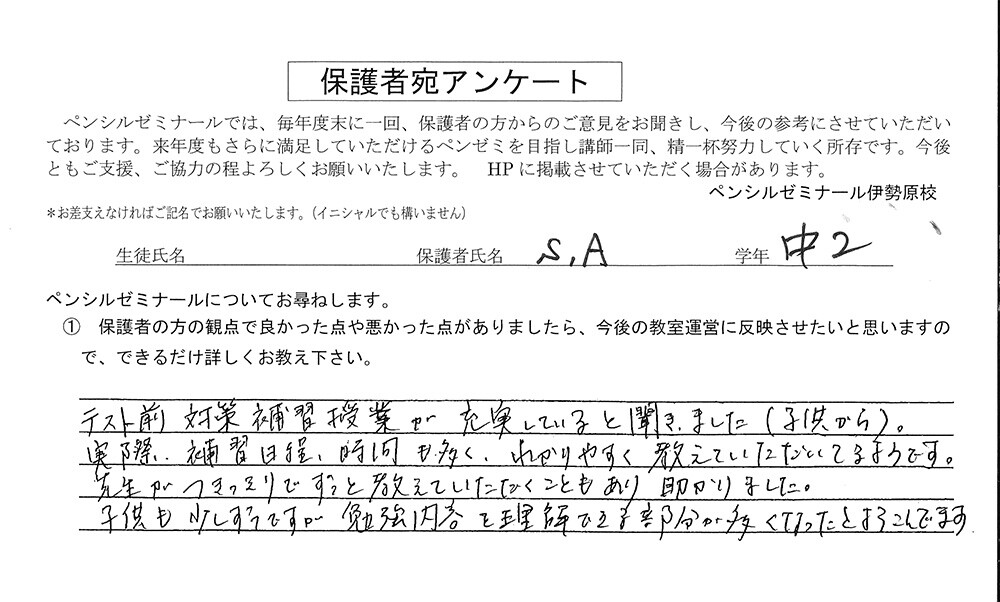 保護者宛アンケート
ペンシルゼミナールでは、毎年度末に一回、保護者の方からのご意見をお聞きし、今後の参考にさせていただい
ております。来年度もさらに満足していただけるペンゼミを目指し講師一同、精一杯努力していく所存です。今後
ともご支援、ご協力の程よろしくお願いいたします。 HPに掲載させていただく場合があります。
ペンシルゼミナール伊勢原校
*お差支えなければご記名でお願いいたします。(イニシャルでも構いません)
生徒氏名 保護者氏名 S,A 学年 中2
ペンシルゼミナールについてお尋ねします。
① 保護者の方の観点で良かった点や悪かった点がありましたら、今後の教室運営に反映させたいと思いますの
で、できるだけ詳しくお教え下さい。
テスト前 対策補習授業が 充実していると聞きました(子供から)。
実際、補習日程、時間も多く、わかりやすく教えていただいてるようです。
先生がつきっきりでずっと教えていただくこともあり助かりました。
子供も少しずつですが勉強内容を理解できる部分が多くなったとよろこんでます